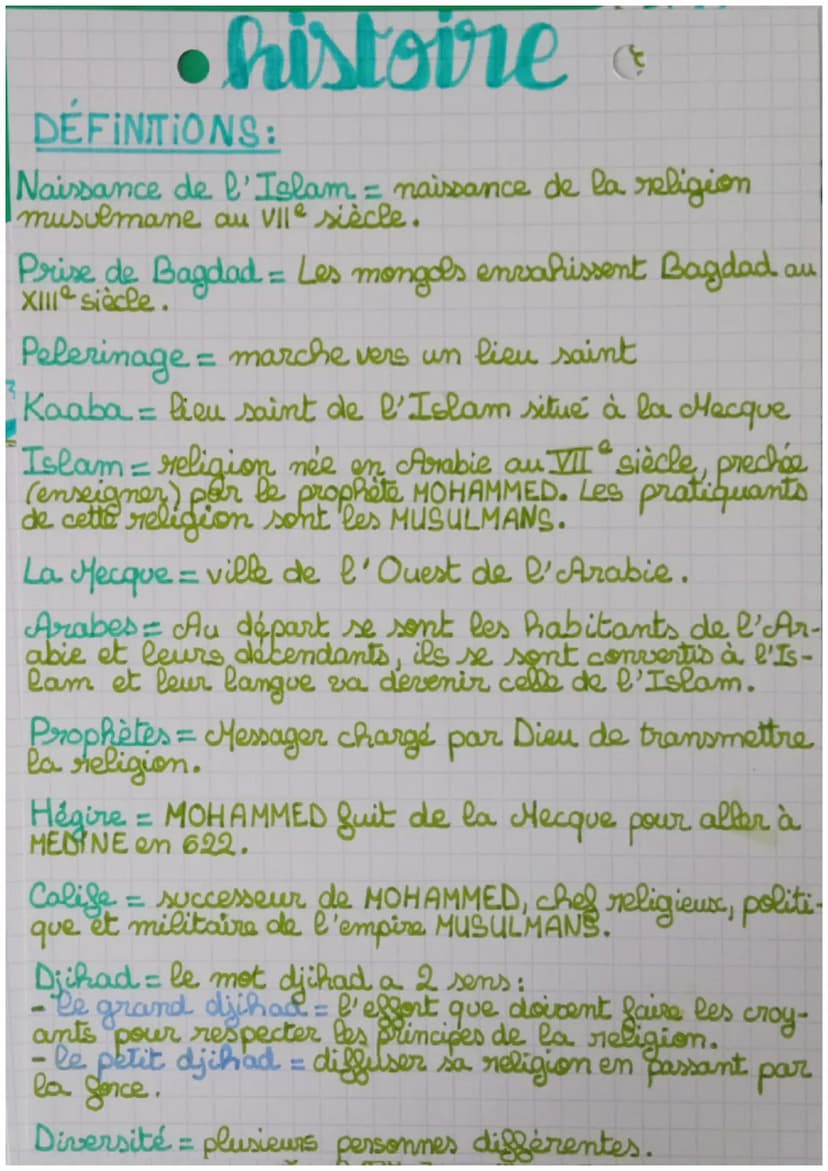 • histoire
DÉFINITIONS:
Naissance de l'Islam = naissance de la religion
musulmane au VIIe siècle.
Prise de Bagdad = Les mongols envahissent Bagdad au
XIIIe siècle.
Pelerinage = marche vers un lieu saint
Kaaba = lieu saint de l'Islam situé à la Mecque
Islam = religion née en Arabie au VIIe siècle, prechée
(enseigner) par le prophète MOHAMMED. Les pratiquants
de cette religion sont les MUSULMANS.
La Mecque = ville de l'Ouest de l'Arabie.
Arabes = Au départ se sont les habitants de l'Ar-
abie et leurs décendants, ils se sont convertis à l'Is-
lam et leur langue va devenir celle de l'Islam.
Prophètes = Messager chargé par Dieu de transmettre
la religion.
Hégire = MOHAMMED fuit de la Mecque pour aller à
MEDINE en 622.
Calife = successeur de MOHAMMED, chef religieux, politi-
que et militaire de l'empire MUSULMANS.
Djihad = le mot djihad a 2 sens:
- le grand djihad = l'effort que doivent faire les croy-
ants pour respecter les principes de la religion.
- le petit djihad = diffuser sa religion en passant par
la force.
Diversité = plusieurs personnes différentes.